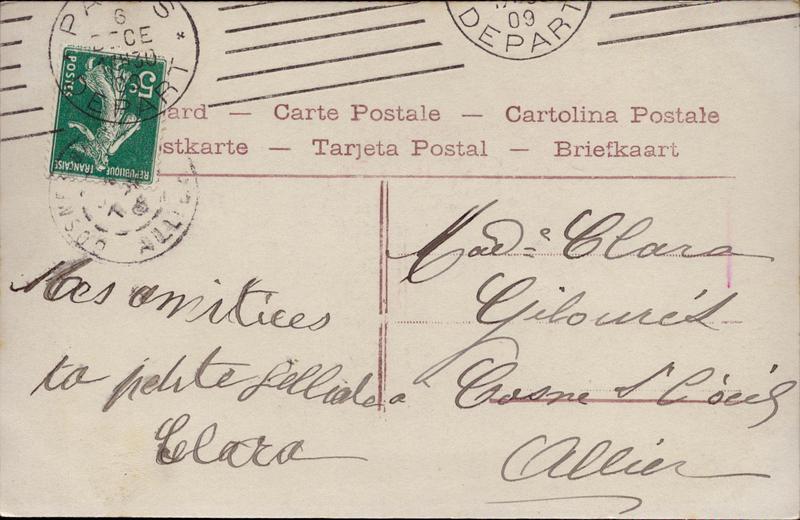 PARIS
6
DÉPART
09
DEPART
5c
POSTES
RÉPUBLIQUE FRANÇAISE
ard — Carte Postale — Cartolina Postale
stkarte — Tarjeta Postal — Briefkaart
COSNE
ALLIER
Mes amitiées
ta petite
Clara
Madᵉ Clara
Cosne s/
Allier